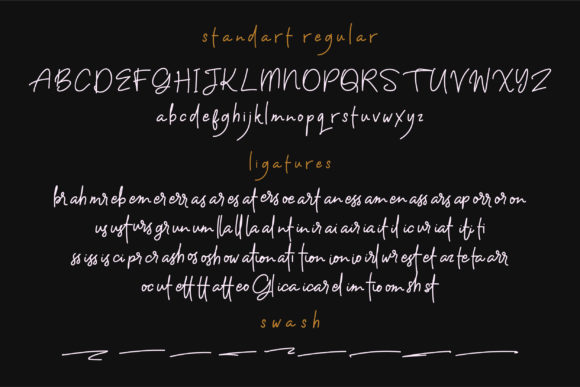 standart regular
ABCDEFGHIJKLMNOPQRSTUVWXYZ
abcdefghijklmnopqrstuvwxyz
ligatures
br ah mr eb em er err as ar es at ers oe art an ess am en ass ars ap orr or on
us ust urs gr un um ll all la al nt in ir ai air ia it d ic ur iat if ti
ss iss is ci pr cr ash os osh ow ation ati tion ion io irl wr est et as te ta arr
oc ut ett tt att eo Gl ica icar el im tio om sh st
swash